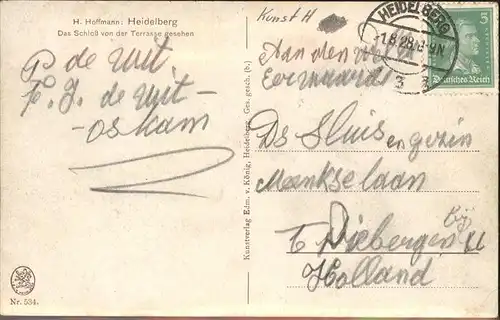 H. Hoffmann: Heidelberg
Das Schloß von der Terrasse gesehen
Kunst H
HEIDELBERG
1.8.28.8-9N
3 3
5
Deutsches Reich
P de Wit.
F. J. de Wit -
- Oskam
Kunstverlag Edm. v. König, Heidelberg. Ges. gesch. (b.)
Aan den
Ds Sluis en gezin
t Driebergen
Holland
Nr. 534.